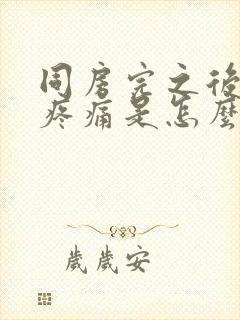 同房完之後
疼痛是怎麼
歲歲安